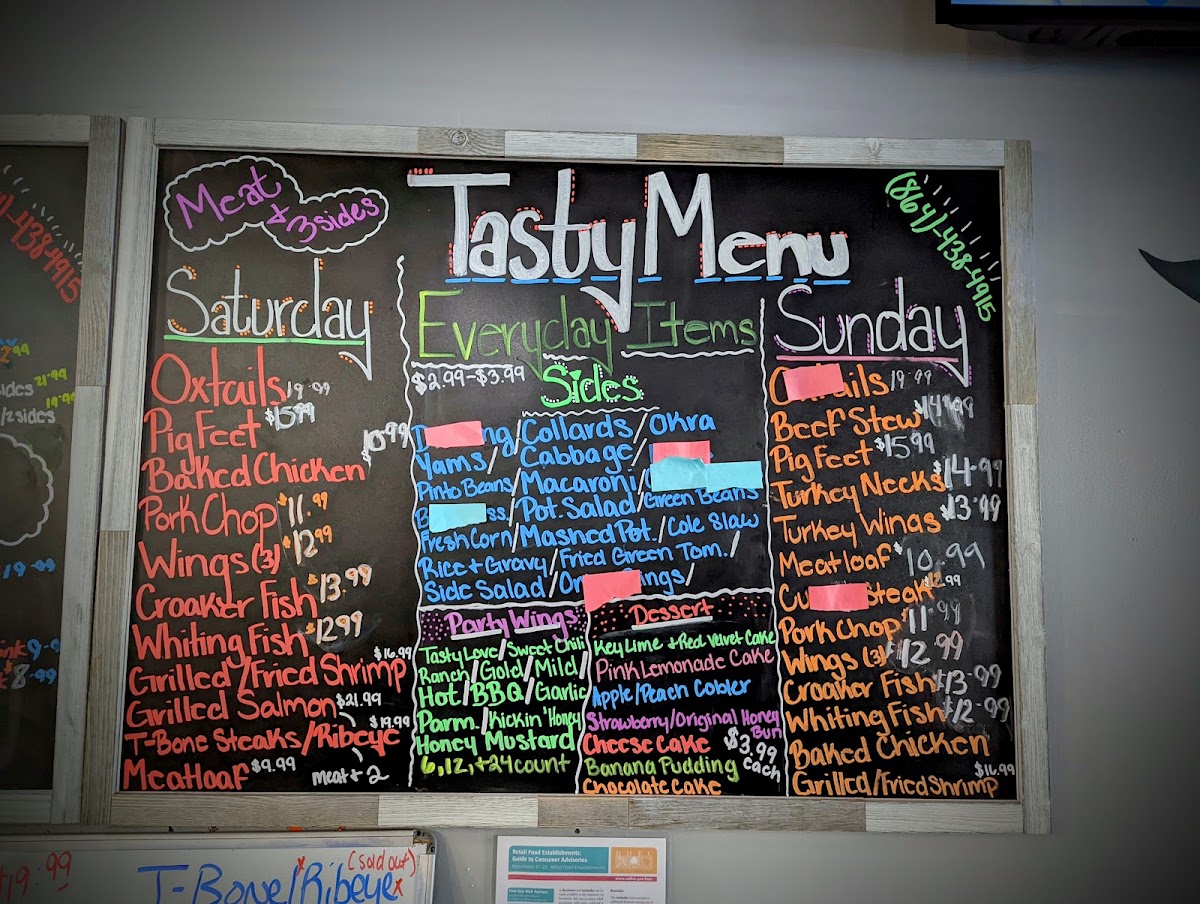 Meat
+ 3 sides
Tasty Menu
(864)-438-4915
Saturday
Oxtails 19.99
Pig Feet $15.99
Baked Chicken 10.99
Pork Chop $11.99
Wings (3) $12.99
Croaker Fish $13.99
Whiting Fish $12.99
Grilled/Fried Shrimp $16.99
Grilled Salmon $21.99
T-Bone Steaks/Ribeye $19.99
Meatloaf $9.99
meat + 2
Everyday Items
$2.99-$3.99
Sides
ng/Collards/Okra
Yams/Cabbage/
Pinto Beans/Macaroni/
ss/Pot. Salad/Green Beans
Fresh Corn/Mashed Pot./Cole Slaw
Rice + Gravy/Fried Green Tom./
Side Salad/On ings/
Party Wings
Tasty Love/Sweet Chili
Ranch/Gold/Mild/
Hot/BBQ/Garlic
Parm./Kickin' Honey
Honey Mustard
6, 12, + 24 count
Dessert
Key Lime + Red Velvet Cake
Pink Lemonade Cake
Apple/Peach Cobler
Strawberry/Original Honey
Bun
Cheese Cake
Banana Pudding
Chocolate Cake
$3.99
each
Sunday
O tails 19.99
Beef Stew $14.99
Pig Feet $15.99
Turkey Necks $14.99
Turkey Wings $13.99
Meatloaf $10.99
Cu Steak $12.99
Pork Chop $11.99
Wings (3) $12.99
Croaker Fish $13.99
Whiting Fish $12.99
Baked Chicken
Grilled/Fried Shrimp $16.99
)-438-4915
sides 21.99
/2 sides 19.99
19.99
9.99
8.99
$19.99
T-Bone/Ribeye
(sold out)
Retail Food Establishments:
Guide to Consumer Advisories